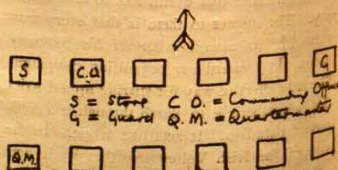 S C.O. G
S = C.O. = Commanding
G = Guard Q.M. = Quartermaster
Q.M.